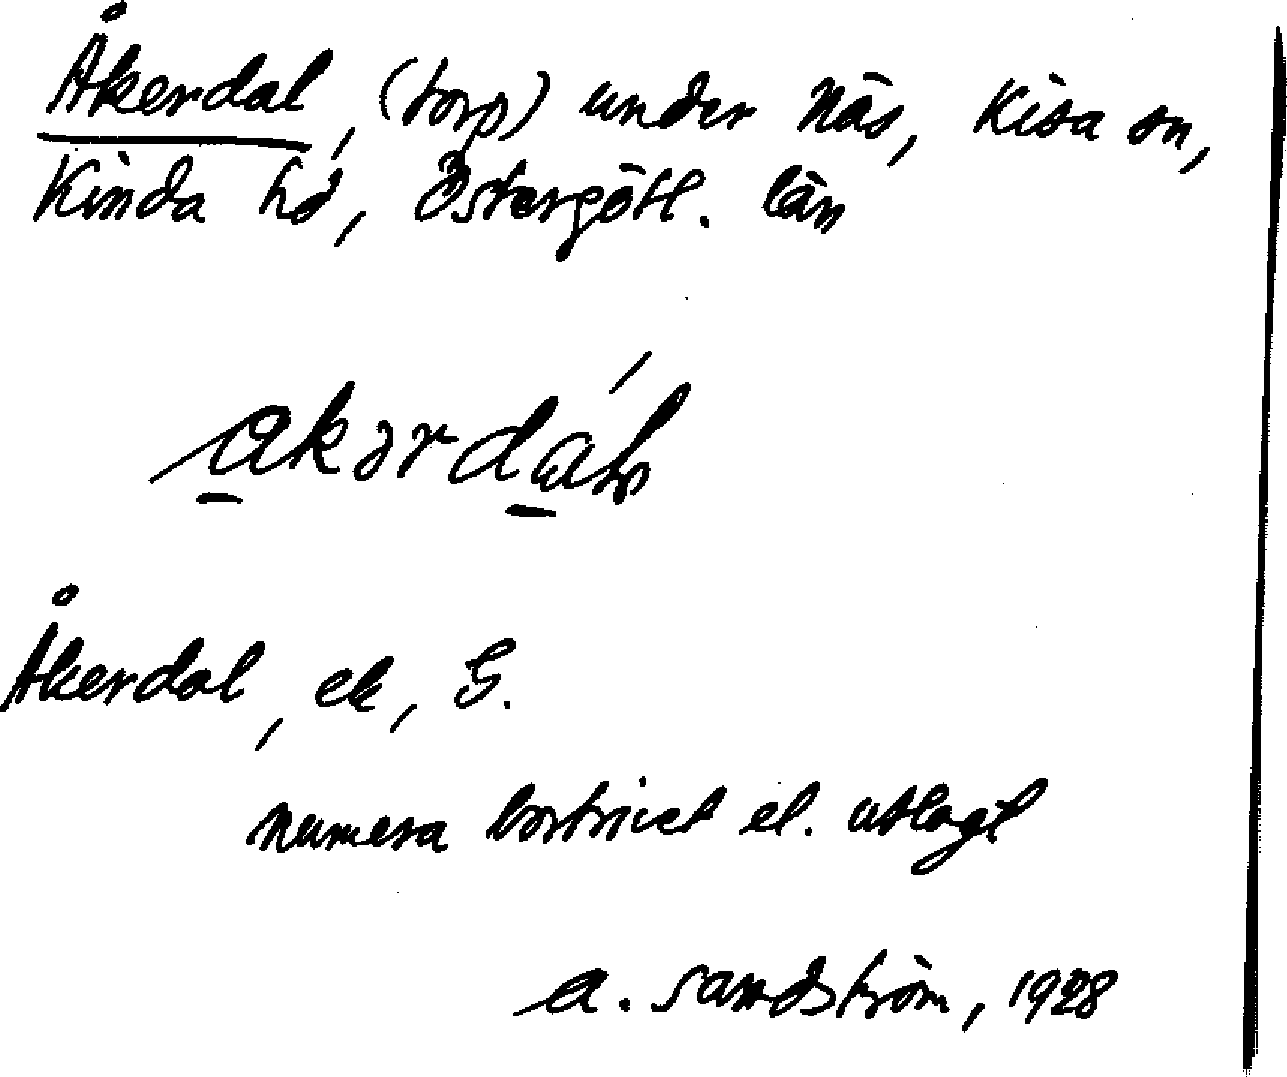 Åkerdal, (torp) under Näs, Kisa sn,
Kinda hd, Östergötl. län
Åkerdal, ek, G.
numera bortrivet el. utlagt
A. Sandström, 1928